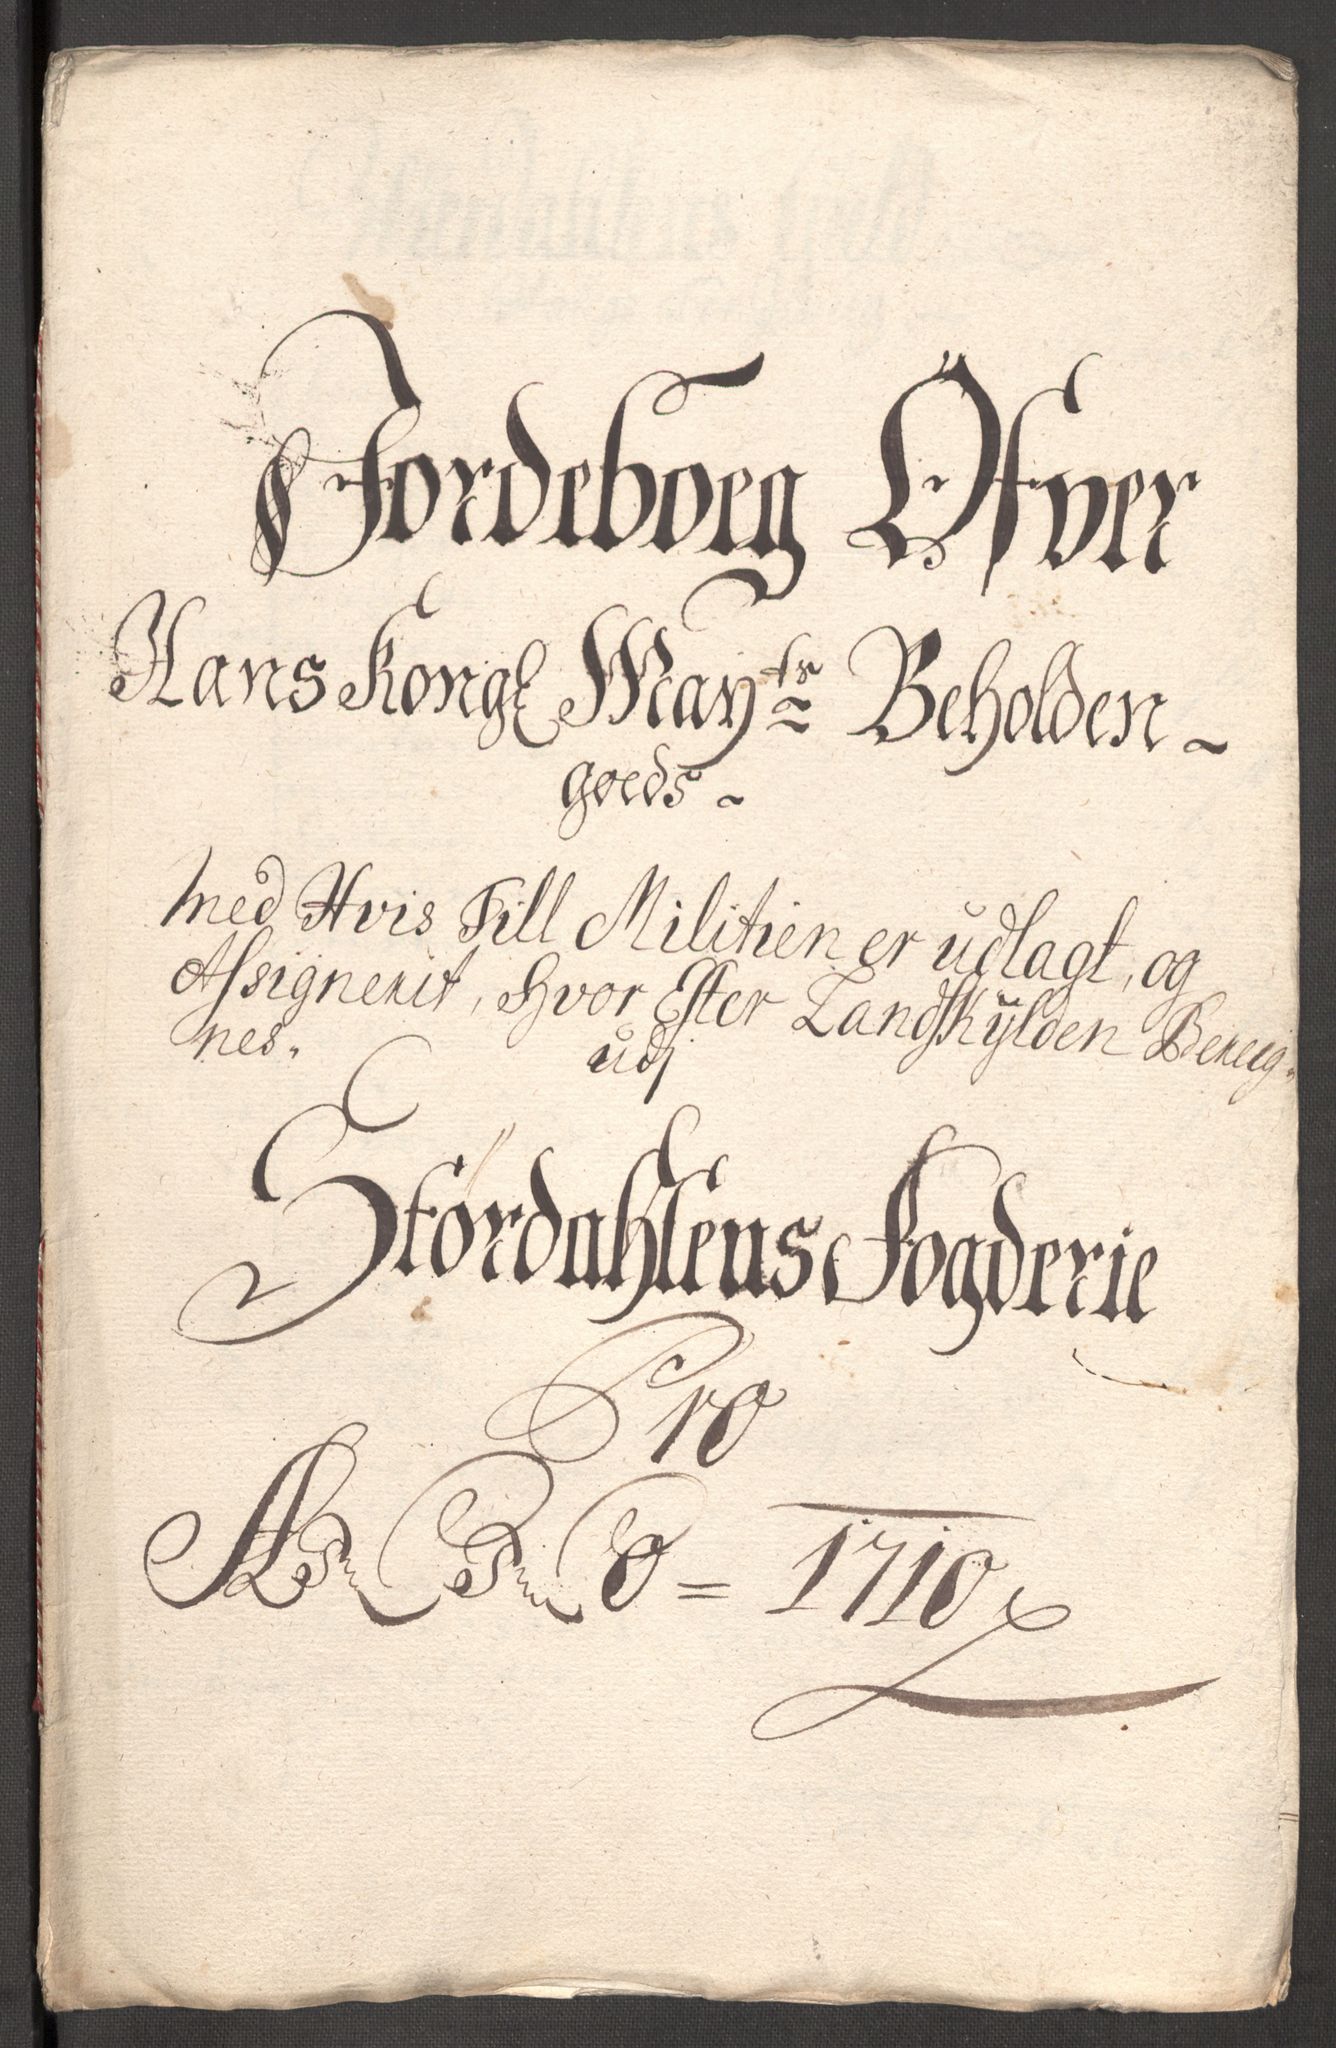 Jordeboeg Öfver
Hans Kongl Mayts Beholden
goeds
med Hvis Till Militien er udlagt, og
Assignerit, hvor Efter Landskÿlden Bereig-
nes. udj
Stördahlens Fogderie
Pro
ANNO = 1710